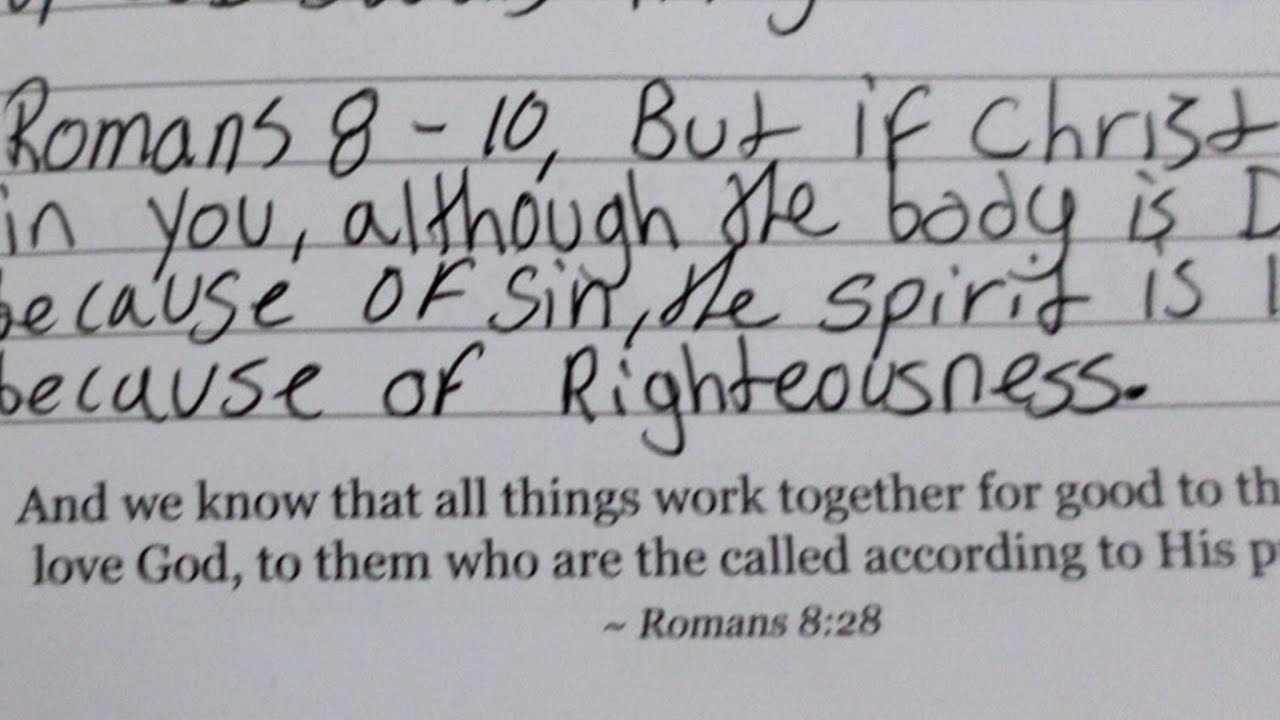 Romans 8 - 10, But if Christ
in you, although the body is D
because of sin, the spirit is
because of Righteousness.
And we know that all things work together for good to th
love God, to them who are the called according to His p
~ Romans 8:28